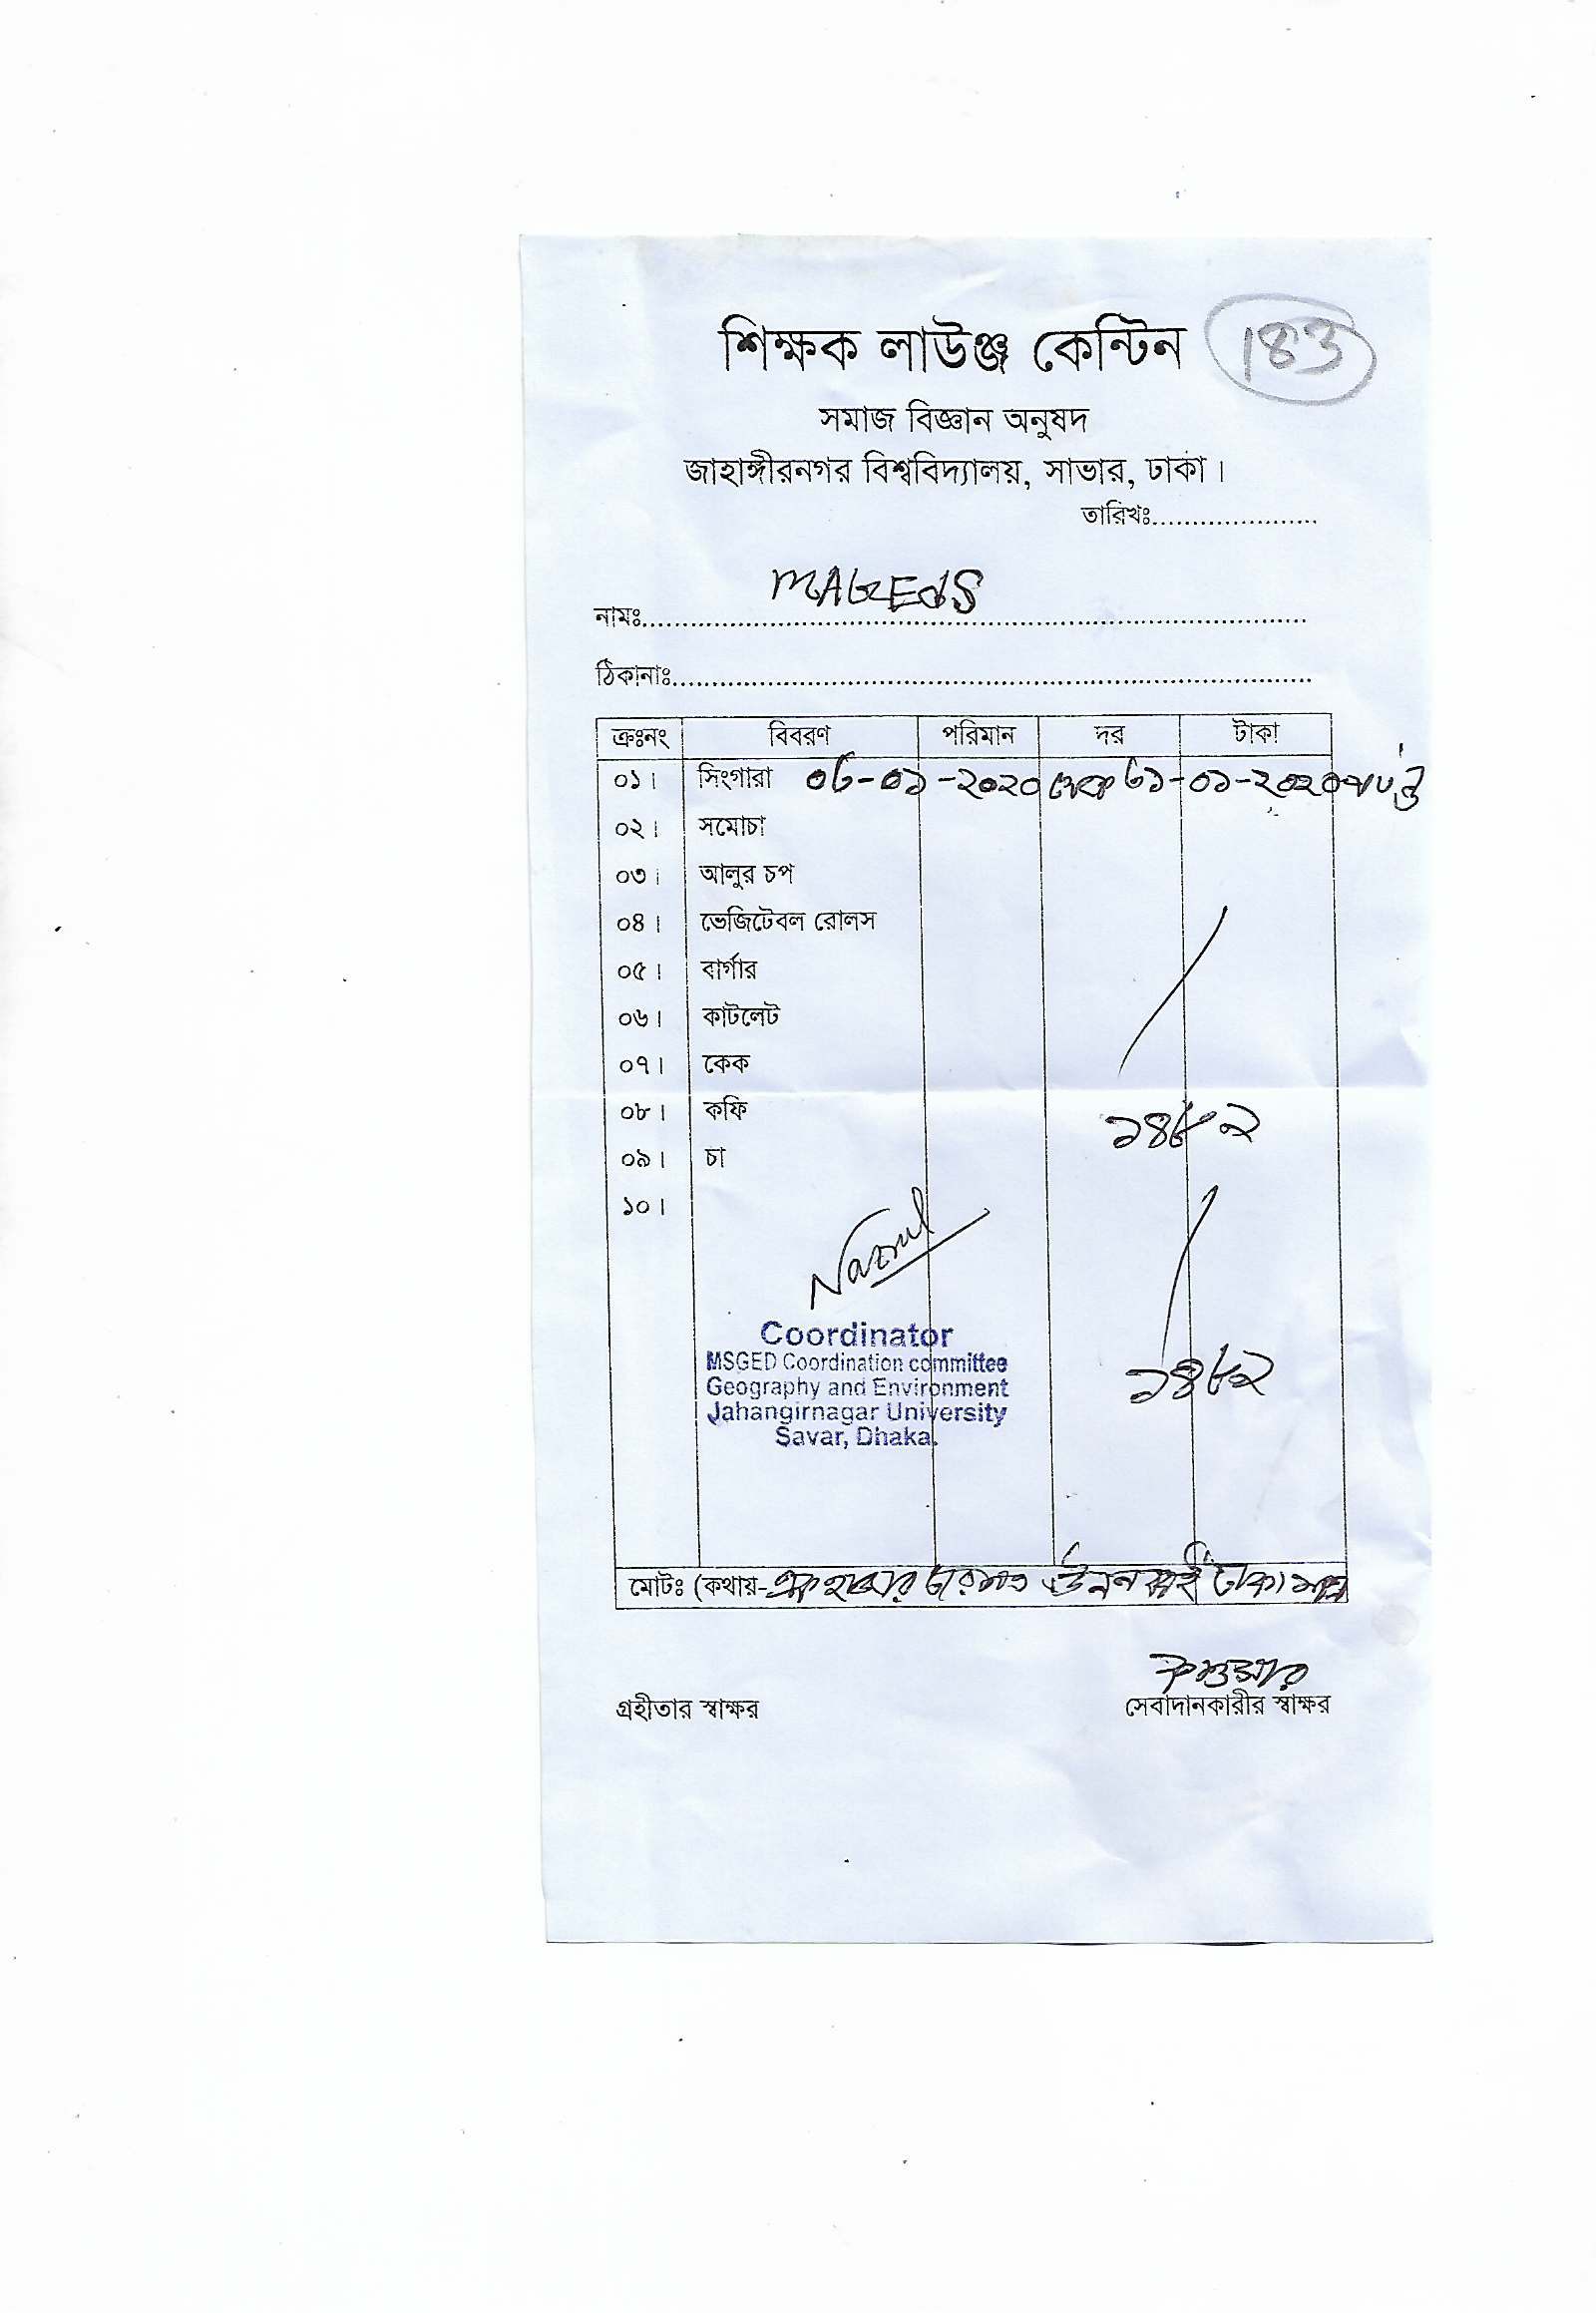 শিক্ষক লাউঞ্জ কেন্টিন
183
সমাজ বিজ্ঞান অনুষদ
জাহাঙ্গীরনগর বিশ্ববিদ্যালয়, সাভার, ঢাকা।
তারিখঃ.....................
নামঃ
ঠিকানাঃ
ক্রঃনং বিবরণ পরিমান দর টাকা
০১। সিংগারা ০৮-০১-২০২০ থেকে ৩১-০১-২০২০ পর্যন্ত
০২। সমোচা
০৩। আলুর চপ
০৪। ভেজিটেবল রোলস
০৫। বার্গার
০৬। কাটলেট
০৭। কেক
০৮। কফি ১৪৮২
০৯। চা
১০।
Nazrul
Coordinator
MSGED Coordination committee
Geography and Environment
Jahangirnagar University
Savar, Dhaka.
১৪৮২
মোটঃ (কথায়- এক হাজার চারশত টাকা মাত্র
গ্রহীতার স্বাক্ষর
সেবাদানকারীর স্বাক্ষর